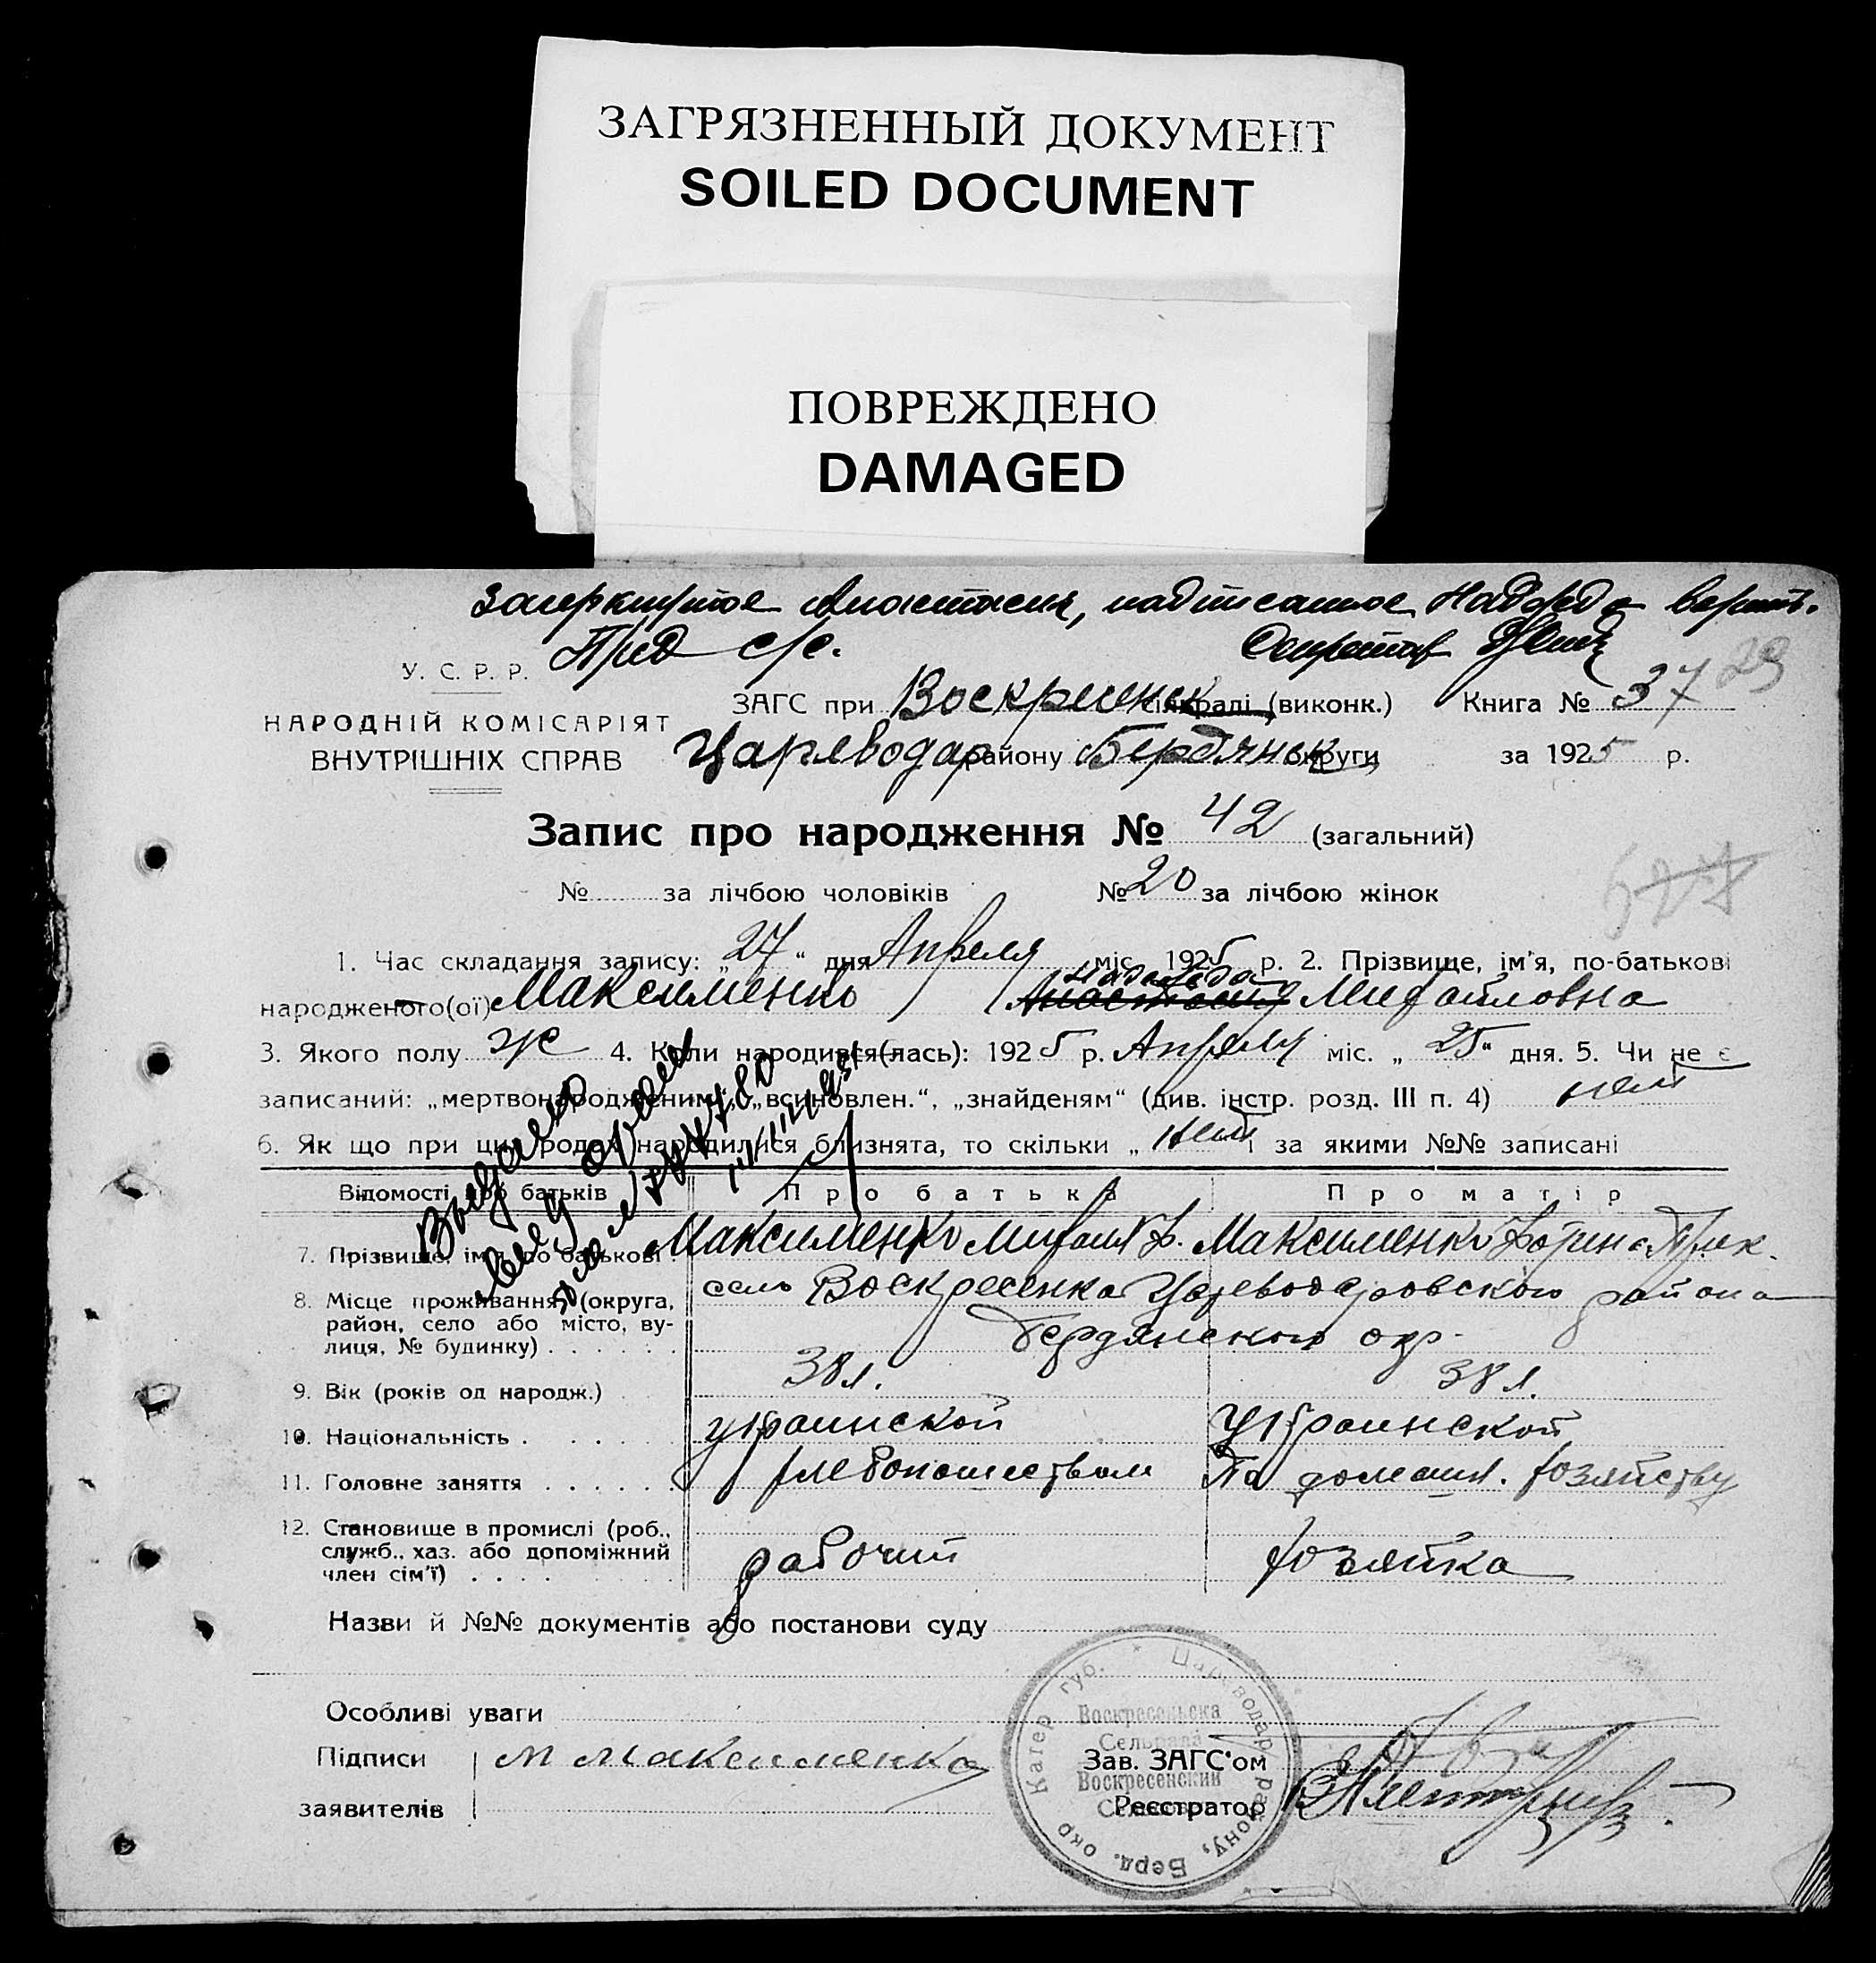 ЗАГРЯЗНЕННЫЙ ДОКУМЕНТ
SOILED DOCUMENT
ПОВРЕЖДЕНО
DAMAGED
Зачеркнутое Анастасия, надписанное Надежда верить.
Пред с/с. Секретар
У. С. Р. Р.
ЗАГС при Воскресенск сільраді (виконк.) Книга № 37 29
НАРОДНІЙ КОМІСАРІЯТ
ВНУТРІШНІХ СПРАВ
Цареводар району Бердянськ округи за 1925 р.
Запис про народження № 42 (загальний)
№ за лічбою чоловіків № 20 за лічбою жінок
1. Час складання запису: „27“ дня Апреля міс. 1925 р. 2. Прізвище, ім'я, по-батькові
Надежда
народженого(ої) Максименко Анастасия Михайловна
3. Якого полу ж 4. Коли народився(лась): 1925 р. Апреля міс. „25“ дня. 5. Чи не є
записаний: „мертвонародженим“, „всиновлен.“, „знайденям“ (див. інстр. розд. III п. 4) нет
6. Як що при цих родах народилися близнята, то скільки „нет і за якими №№ записані
Выдано
Відомості про батьків Про батька Про матір
7. Прізвище, ім'я по батькові . Максименко Михаил Максименко
8. Місце проживання, (округа, село Воскресенка Цареводаровского района
район, село або місто, ву-
лиця, № будинку) . . . . . . Бердянского окр.
9. Вік (років од народж.) 38 л. 38 л.
10. Національність . . . . украинской Украинской
11. Головне заняття . . . . . . хлебопашеством По домашн. хозяйству
12. Становище в промислі (роб.,
служб., хаз. або допоміжний рабочий хозяйка
член сім'ї) . . . .
Назви й №№ документів або постанови суду
Особливі уваги
Підписи М Максименко Зав. ЗАГС'ом
заявителів Реєстратор
Катер. губ. * Цареводар. району, Берд. окр
Воскресенська
Сельрада
Воскресенский